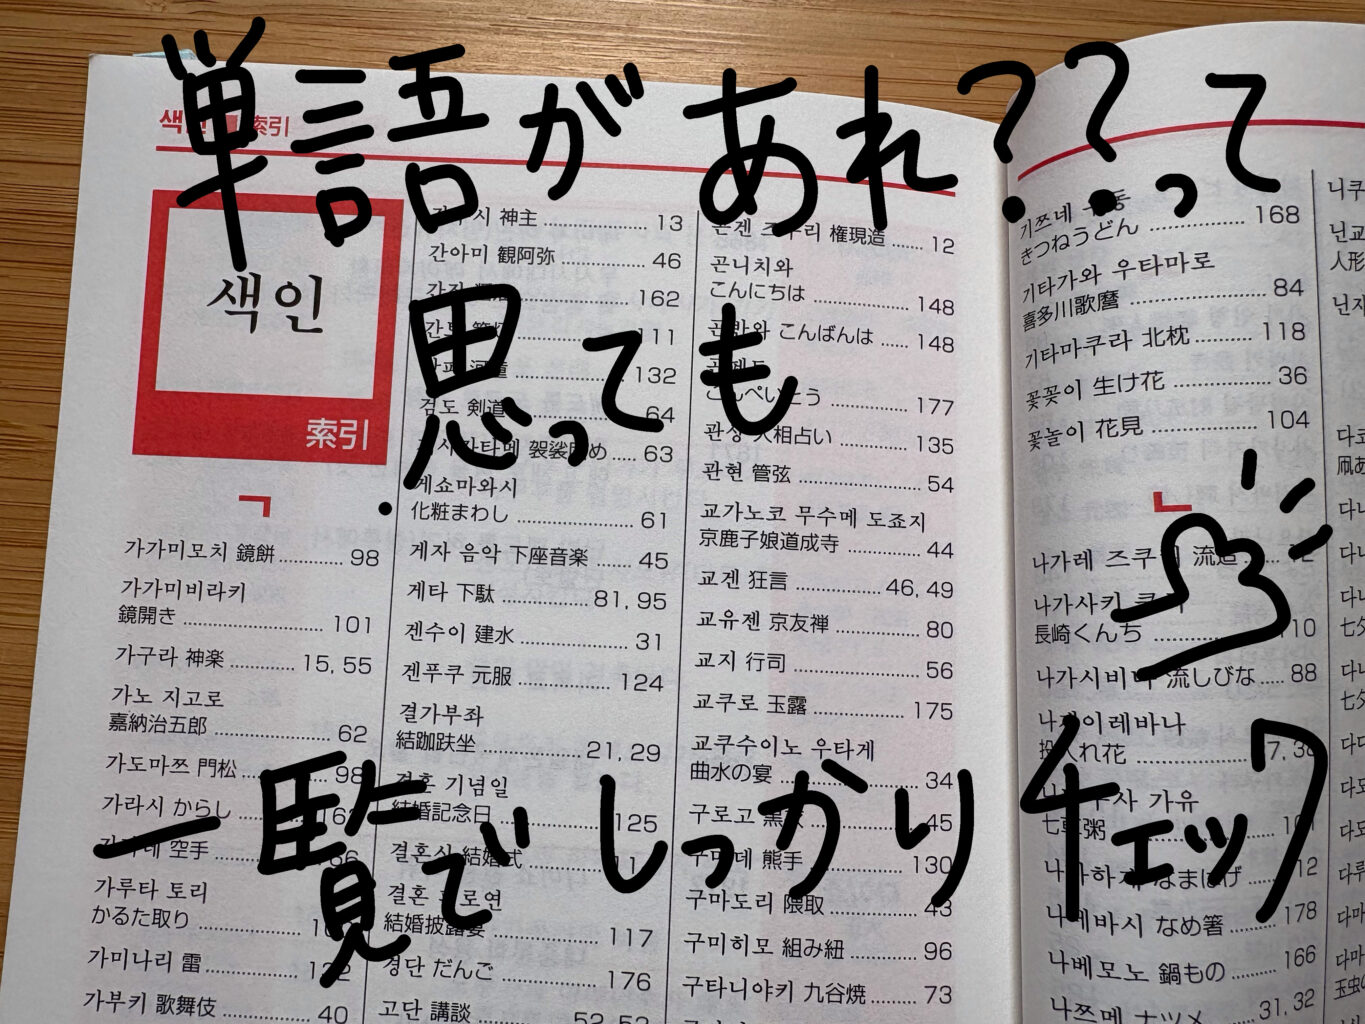 単語があれ??って
思っても
一覧でしっかりチェック
索引
색인
索引
ㄱ
가가미모치 鏡餅 98
가가미비라키
鏡開き 101
가구라 神楽 15, 55
가노 지고로
嘉納治五郎 62
가도마쯔 門松 98
가라시 からし
空手
가루타 토리
かるた取り
가미나리 雷
가부키 歌舞伎 40
神主 13
간아미 観阿弥 46
162
132
검도 剣道 64
63
게쇼마와시
化粧まわし 61
게자 음악 下座音楽 45
게타 下駄 81, 95
겐수이 建水 31
겐푸쿠 元服 124
결가부좌
結跏趺坐 21, 29
결혼 기념일
結婚記念日 125
결혼식 結婚式
결혼 피로연
結婚披露宴 117
경단 だんご 176
고단 講談 52, 53
곤겐 즈쿠리 権現造 12
곤니치와
こんにちは 148
곤방와 こんばんは 148
こんぺいとう 177
관상 人相占い 135
관현 管弦 54
교가노코 무수메 도죠지
京鹿子娘道成寺 44
교겐 狂言 46, 49
교유젠 京友禅 80
교지 行司 56
교쿠로 玉露 175
교쿠수이노 우타게
曲水の宴 34
구로고 黒衣 45
구마데 熊手 130
구마도리 隈取 43
구미히모 組み紐 96
구타니야키 九谷焼 73
기쯔네 우동
きつねうどん 168
기타가와 우타마로
喜多川歌麿 84
기타마쿠라 北枕 118
꽃꽂이 生け花 36
꽃놀이 花見 104
ㄴ
나가레 즈쿠리 流造 12
나가사키 쿤치
長崎くんち 110
나가시비나 流しびな 88
나게이레바나
投入れ花
가유
七草粥
나마하게 なまはげ
나메바시 なめ箸 178
나베모노 鍋もの 166
나쯔메 ナツメ 31, 32
니쿠
닌교
人形
닌자